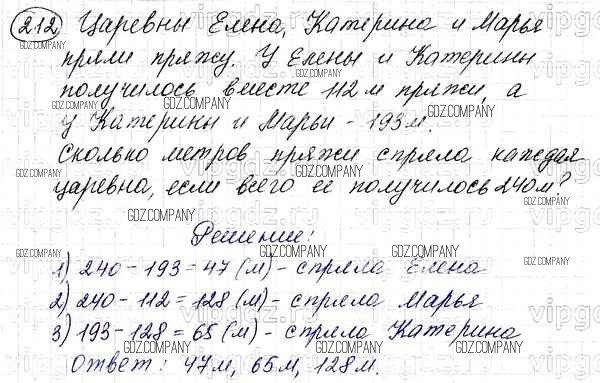 212 Царевны Елена, Катерина и Марья
пряли пряжу. У Елены и Катерины
получилось вместе 112 м пряжи, а
у Катерины и Марьи - 193 м.
Сколько метров пряжи спряла каждая
царевна, если всего её получилось 240 м?
Решение:
1) 240 - 193 = 47 (м) - спряла Елена
2) 240 - 112 = 128 (м) - спряла Марья
3) 193 - 128 = 65 (м) - спряла Катерина
Ответ: 47 м, 65 м, 128 м.
GDZ.COMPANY
vipgdz.ru